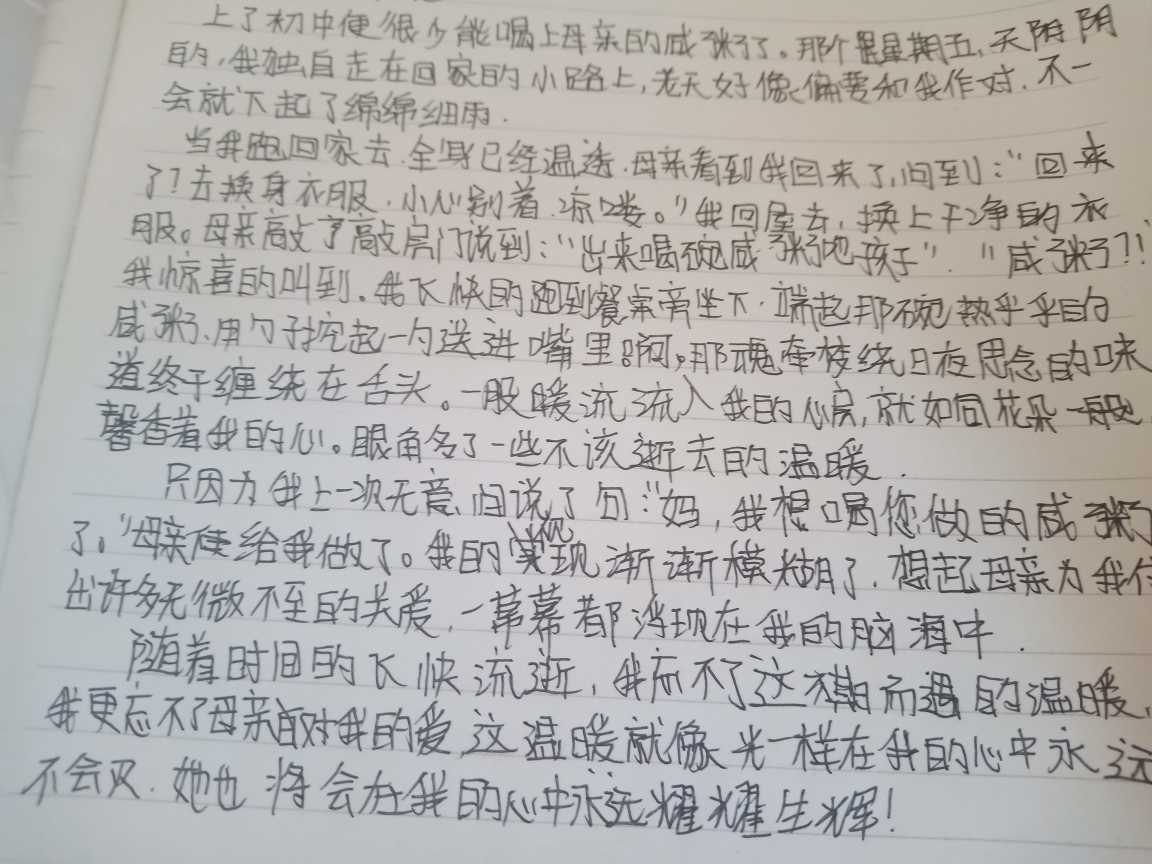 上了初中便很少能喝上母亲的咸粥了。那个是星期五,天阴阴
的,我独自走在回家的小路上,老天好像偏要和我作对,不一
会就下起了绵绵细雨.
当我跑回家去.全身已经温透.母亲看到我回来了,问到:“回来
了?去换身衣服.小心别着.凉喽。”我回屋去,换上干净的衣
服。母亲敲了敲房门说到:“出来喝碗咸粥吧孩子”.“咸粥?!
我惊喜的叫到.我飞快的跑到餐桌旁坐下.端起那碗热乎乎的
咸粥、用勺子挖起一勺送进嘴里。啊,那魂牵梦绕日夜思念的味
道终于缠绕在舌头。一股暖流流入我的心房,就如同花朵一般
馨香着我的心。眼角多了一些不该逝去的温暖.
只因为我上一次无意间说了句:“妈,我想喝您做的咸粥
了。”母亲便给我做了。我的视渐渐模糊了.想起母亲为我付
出许多无微不至的关爱,一幕幕都浮现在我的脑海中.
随着时间的飞快流逝,我忘不了这不期而遇的温暖,
我更忘不了母亲对我的爱,这温暖就像光一样在我的心中永远
不会灭.她也将会在我的心中永远耀耀生辉!